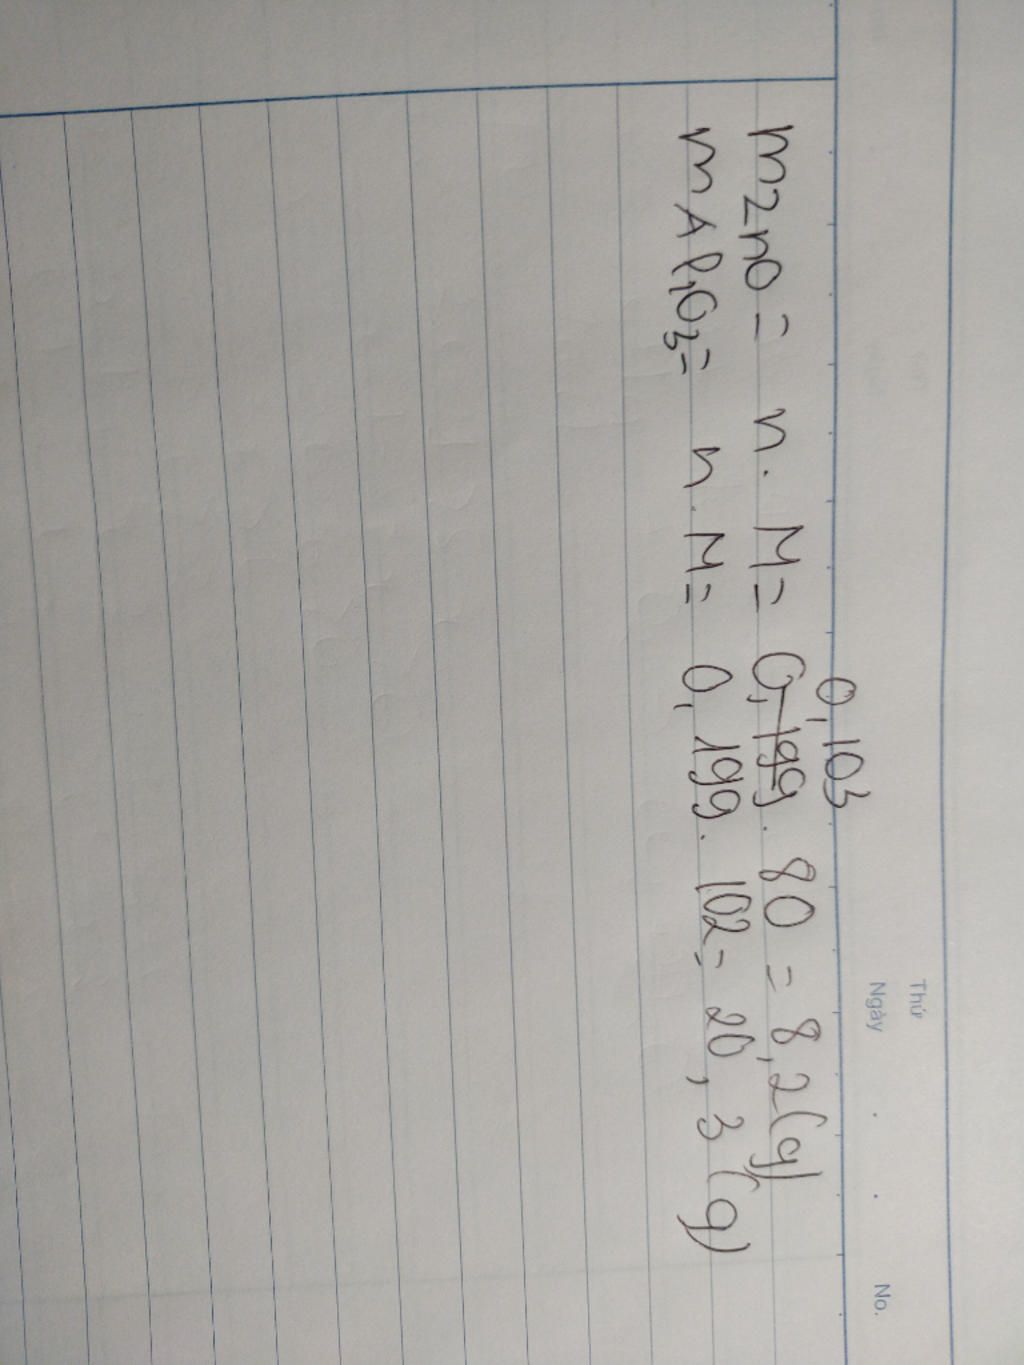 Thứ
Ngày . . No.
0,103
m ZnO = n . M = 0,199 . 80 = 8,2 (g)
m Al2O3 = n . M = 0,199 . 102 = 20,3 (g)